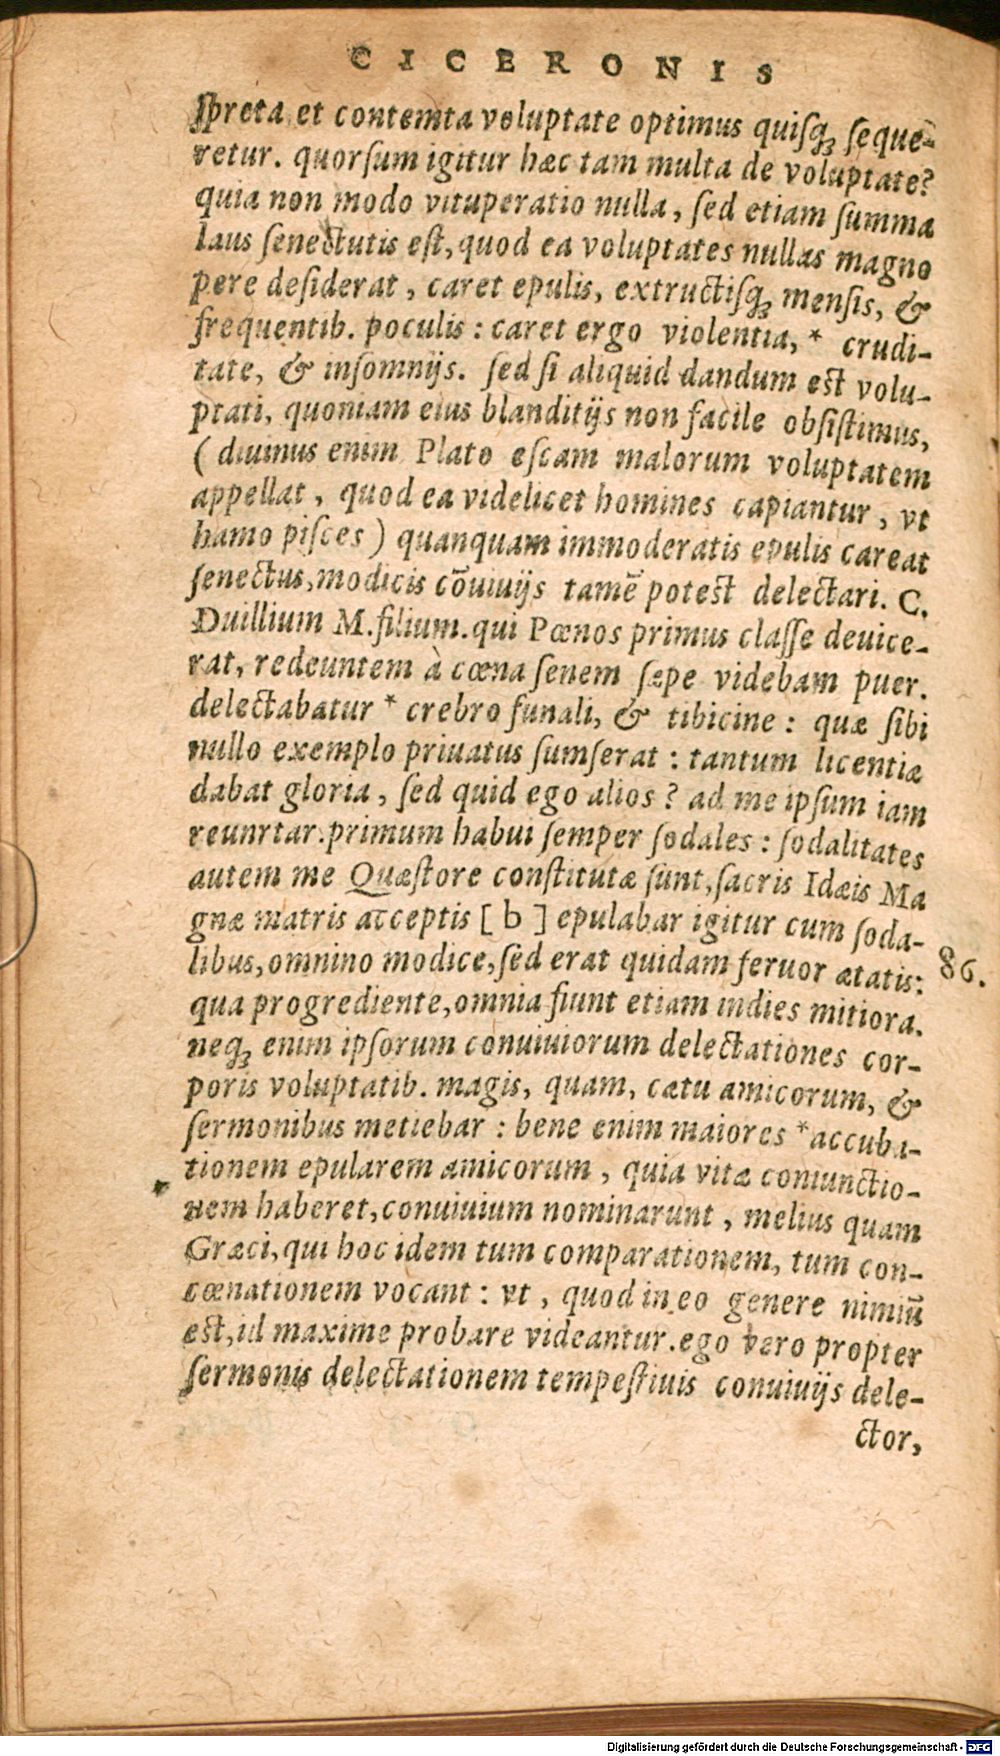 CICERONIS
ſpreta et contemta voluptate optimus quiſq; ſeque-
retur. quorſum igitur hæc tam multa de voluptate?
quia non modo vituperatio nulla, ſed etiam ſumma
laus ſenectutis eſt, quod ea voluptates nullas magno
pere deſiderat, caret epulis, extructiſq; menſis, &
frequentib. poculis: caret ergo violentia, * crudi-
tate, & inſomnijs. ſed ſi aliquid dandum eſt volu-
ptati, quoniam eius blanditijs non facile obſiſtimus,
( diuinus enim Plato eſcam malorum voluptatem
appellat, quod ea videlicet homines capiantur, vt
hamo piſces ) quanquam immoderatis epulis careat
ſenectus, modicis cōuiuijs tamē poteſt delectari. C.
Duillium M. filium. qui Pœnos primus claſſe deuice-
rat, redeuntem à cœna ſenem ſæpe videbam puer.
delectabatur * crebro funali, & tibicine: quæ ſibi
nullo exemplo priuatus ſumſerat: tantum licentiæ
dabat gloria, ſed quid ego alios? ad me ipſum iam
reunrtar. primum habui ſemper ſodales: ſodalitates
autem me Quæſtore conſtitutæ ſunt, ſacris Idæis Ma
gnæ matris acceptis [ b ] epulabar igitur cum ſoda-
libus, omnino modice, ſed erat quidam feruor ætatis: 86.
qua progrediente, omnia fiunt etiam indies mitiora.
neq; enim ipſorum conuiuiorum delectationes cor-
poris voluptatib. magis, quam, cætu amicorum, &
ſermonibus metiebar: bene enim maiores * accuba-
tionem epularem amicorum, quia vitæ coniunctio-
nem haberet, conuiuium nominarunt, melius quam
Græci, qui hoc idem tum comparationem, tum con-
cœnationem vocant: vt, quod in eo genere nimiū
eſt, id maxime probare videantur. ego vero propter
ſermonis delectationem tempeſtiuis conuiuijs dele-
ctor,
Digitalisierung gefördert durch die Deutsche Forschungsgemeinschaft - DFG